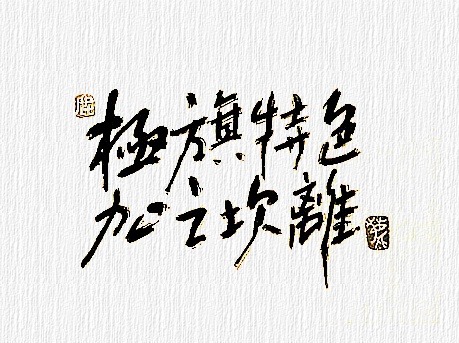 極旗特色
加之坎離